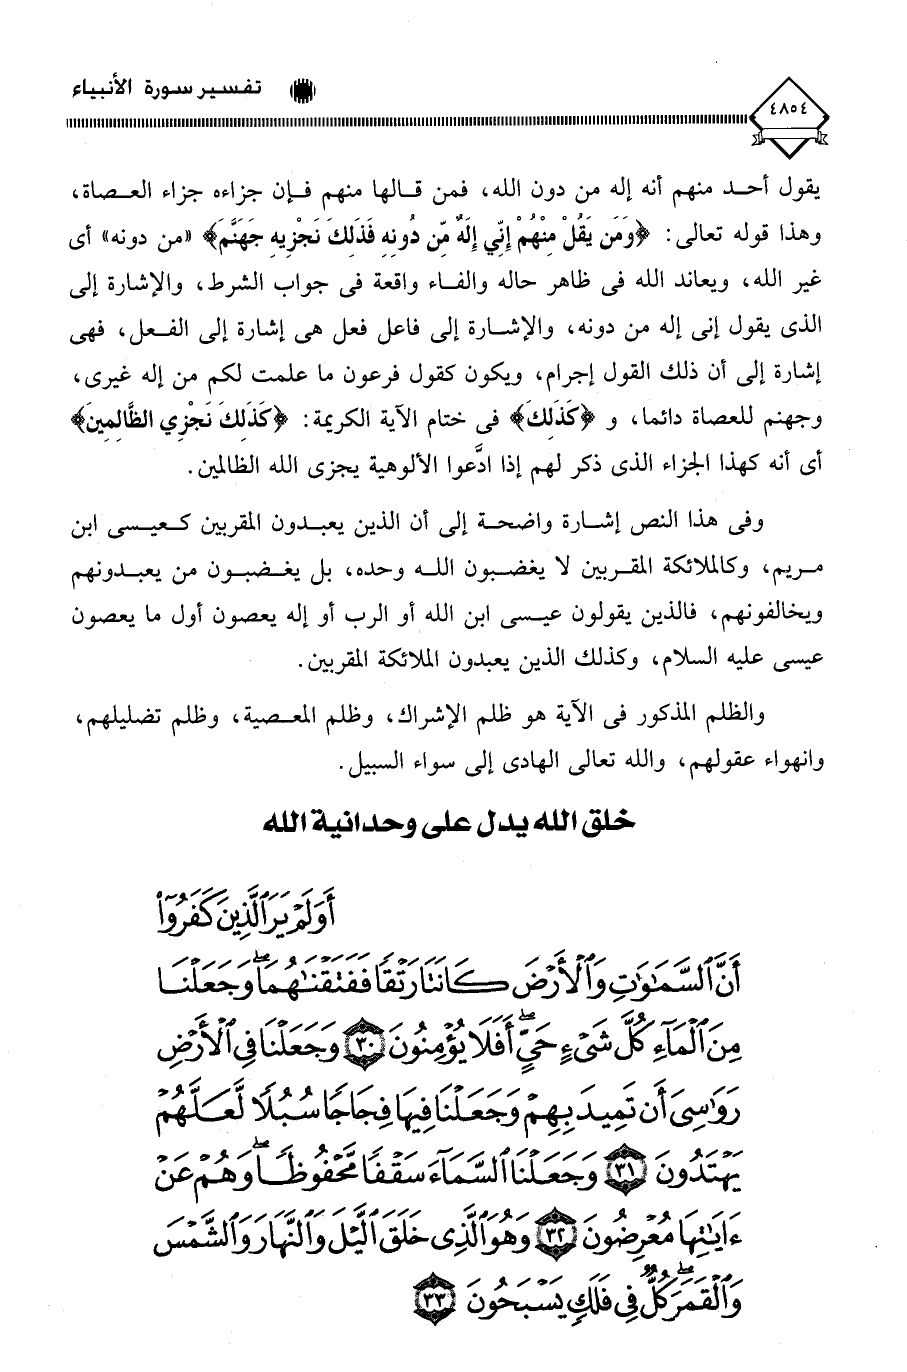 ٤٨٥٤
تفسير سورة الأنبياء
يقول أحد منهم أنه إله من دون الله، فمن قالها منهم فإن جزاءه جزاء العصاة،
وهذا قوله تعالى: ﴿وَمَن يَقُلْ مِنْهُمْ إِنِّي إِلَهٌ مِّن دُونِهِ فَذَلِكَ نَجْزِيهِ جَهَنَّمَ﴾ «من دونه» أى
غير الله، ويعاند الله فى ظاهر حاله والفاء واقعة فى جواب الشرط، والإشارة إلى
الذى يقول إنى إله من دونه، والإشارة إلى فاعل فعل هى إشارة إلى الفعل، فهى
إشارة إلى أن ذلك القول إجرام، ويكون كقول فرعون ما علمت لكم من إله غيرى،
وجهنم للعصاة دائما، و ﴿كَذَلِكَ﴾ فى ختام الآية الكريمة: ﴿كَذَلِكَ نَجْزِي الظَّالِمِينَ﴾
أى أنه كهذا الجزاء الذى ذكر لهم إذا ادَّعوا الألوهية يجزى الله الظالمين.
وفى هذا النص إشارة واضحة إلى أن الذين يعبدون المقربين كعيسى ابن
مريم، وكالملائكة المقربين لا يغضبون الله وحده، بل يغضبون من يعبدونهم
ويخالفونهم، فالذين يقولون عيسى ابن الله أو الرب أو إله يعصون أول ما يعصون
عيسى عليه السلام، وكذلك الذين يعبدون الملائكة المقربين.
والظلم المذكور فى الآية هو ظلم الإشراك، وظلم المعصية، وظلم تضليلهم،
وانهواء عقولهم، والله تعالى الهادى إلى سواء السبيل.
خلق الله يدل على وحدانية الله
أَوَلَمْ يَرَ ٱلَّذِينَ كَفَرُوٓا۟
أَنَّ ٱلسَّمَٰوَٰتِ وَٱلْأَرْضَ كَانَتَا رَتْقًا فَفَتَقْنَٰهُمَا ۖ وَجَعَلْنَا
مِنَ ٱلْمَآءِ كُلَّ شَىْءٍ حَىٍّ ۖ أَفَلَا يُؤْمِنُونَ ٣٠ وَجَعَلْنَا فِى ٱلْأَرْضِ
رَوَٰسِىَ أَن تَمِيدَ بِهِمْ وَجَعَلْنَا فِيهَا فِجَاجًا سُبُلًا لَّعَلَّهُمْ
يَهْتَدُونَ ٣١ وَجَعَلْنَا ٱلسَّمَآءَ سَقْفًا مَّحْفُوظًا ۖ وَهُمْ عَنْ
ءَايَٰتِهَا مُعْرِضُونَ ٣٢ وَهُوَ ٱلَّذِى خَلَقَ ٱلَّيْلَ وَٱلنَّهَارَ وَٱلشَّمْسَ
وَٱلْقَمَرَ ۖ كُلٌّ فِى فَلَكٍ يَسْبَحُونَ ٣٣